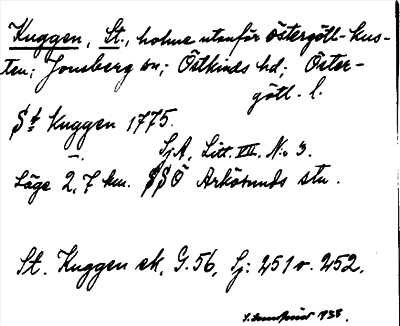 Kuggen, St., holme utanför östergötl-kus-
ten; Jonsberg sn; Östkinds hd; Öster-
götl. l.
St Kuggen 1775.
SjA, Litt. VII. No 3.
Läge 2,7 km. SSÖ Arkösunds stn.
St. Kuggen ek, G.56, Sj: 251 o. 252.
1938.